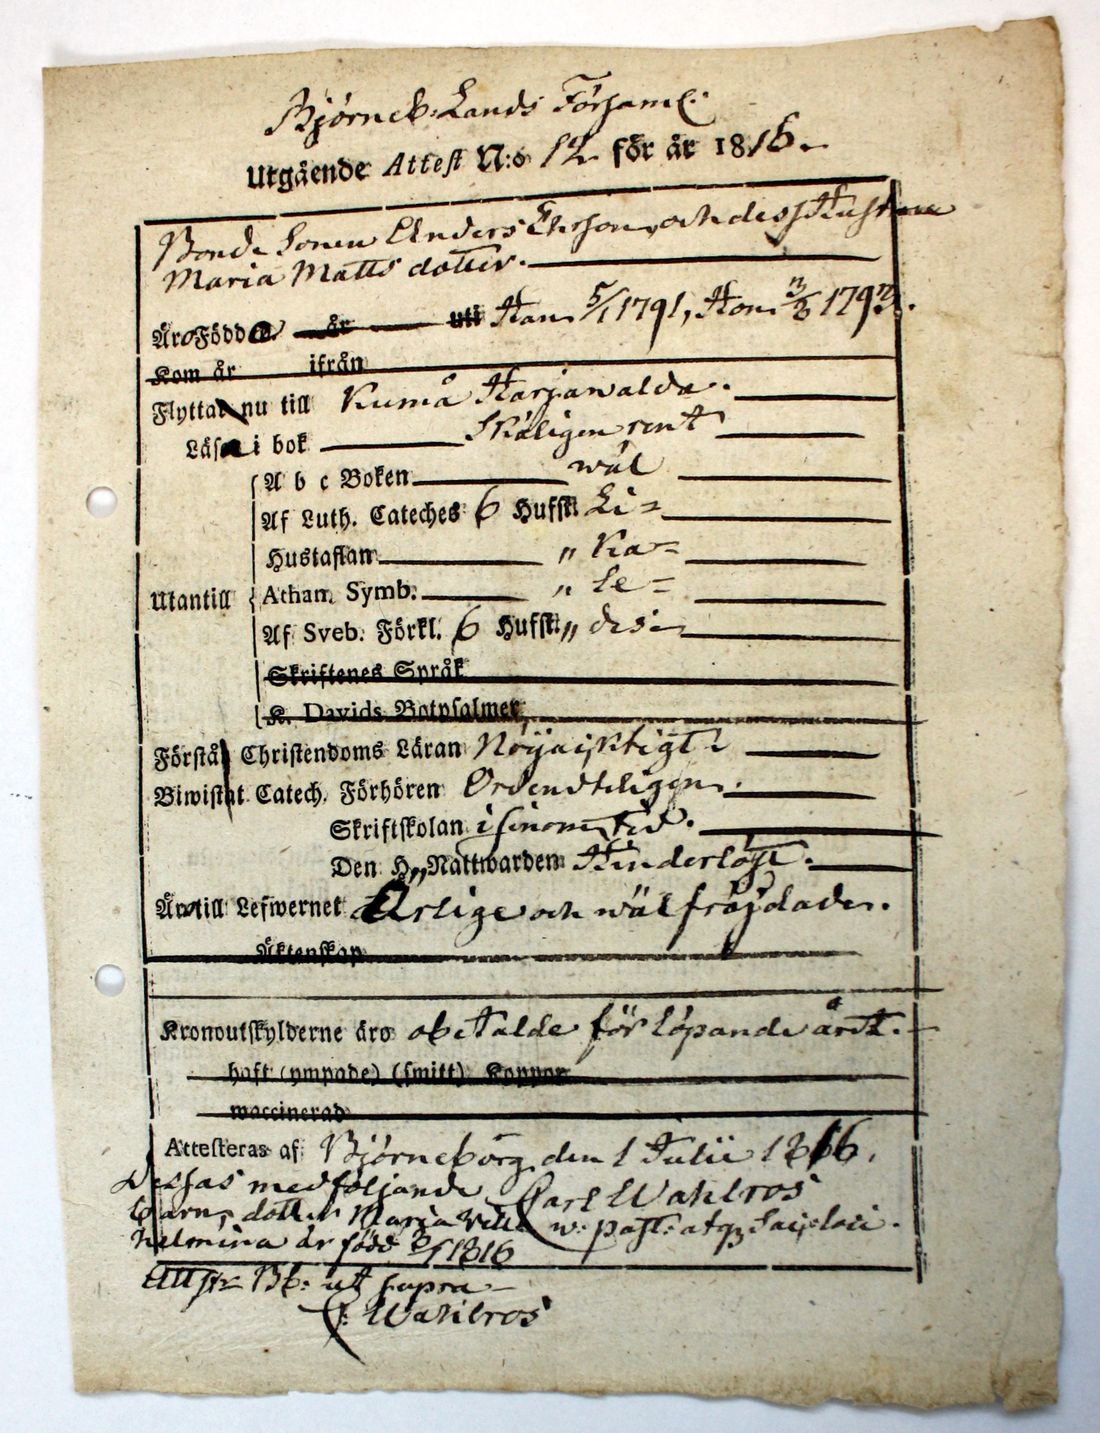 Björneb: Lands Församl:
Utgående Attest N:o 12 för år 1816.
Bonde Sonen Anders Ersson, och dess Hustru
Maria Matts dotter.
Äro Födde år uti Han 5/1 1791, Hon 1792.
Kom år ifrån
Flytta nu till Kumå Harjawalda.
Läsa i bok Skäligen rent
A b c Boken wäl
Af Luth. Cateches 6 Hufst: Li=
Hustaflan " Ka=
Utantill Athan. Symb. " Le=
Af Sveb. Förkl. 6 Hufst: " des=
Skriftenes Språk
K. Davids Botpsalmer,
Förstå Christendoms Läran Nöjaiktigt
Biwistat Catech. Förhören Ordenteligen.
Skriftskolan i sinom tid.
Den H. Nattwarden Hinderlöst.
Äro till Lefwernet Ärlige och wälfräjdade.
Äktenskap
Kronoutskylderne äro betalde för löpande året.
haft (ympade) (smitt) Koppor
waccinerad
Attesteras af Björneborg den 1 Julii 1816.
Dessas medföljande Carl Wahlros
barn, dotter Maria Vill= w: past: atq
helmina är född 1816
Attest: Bb: ut supra
C: Wahlros